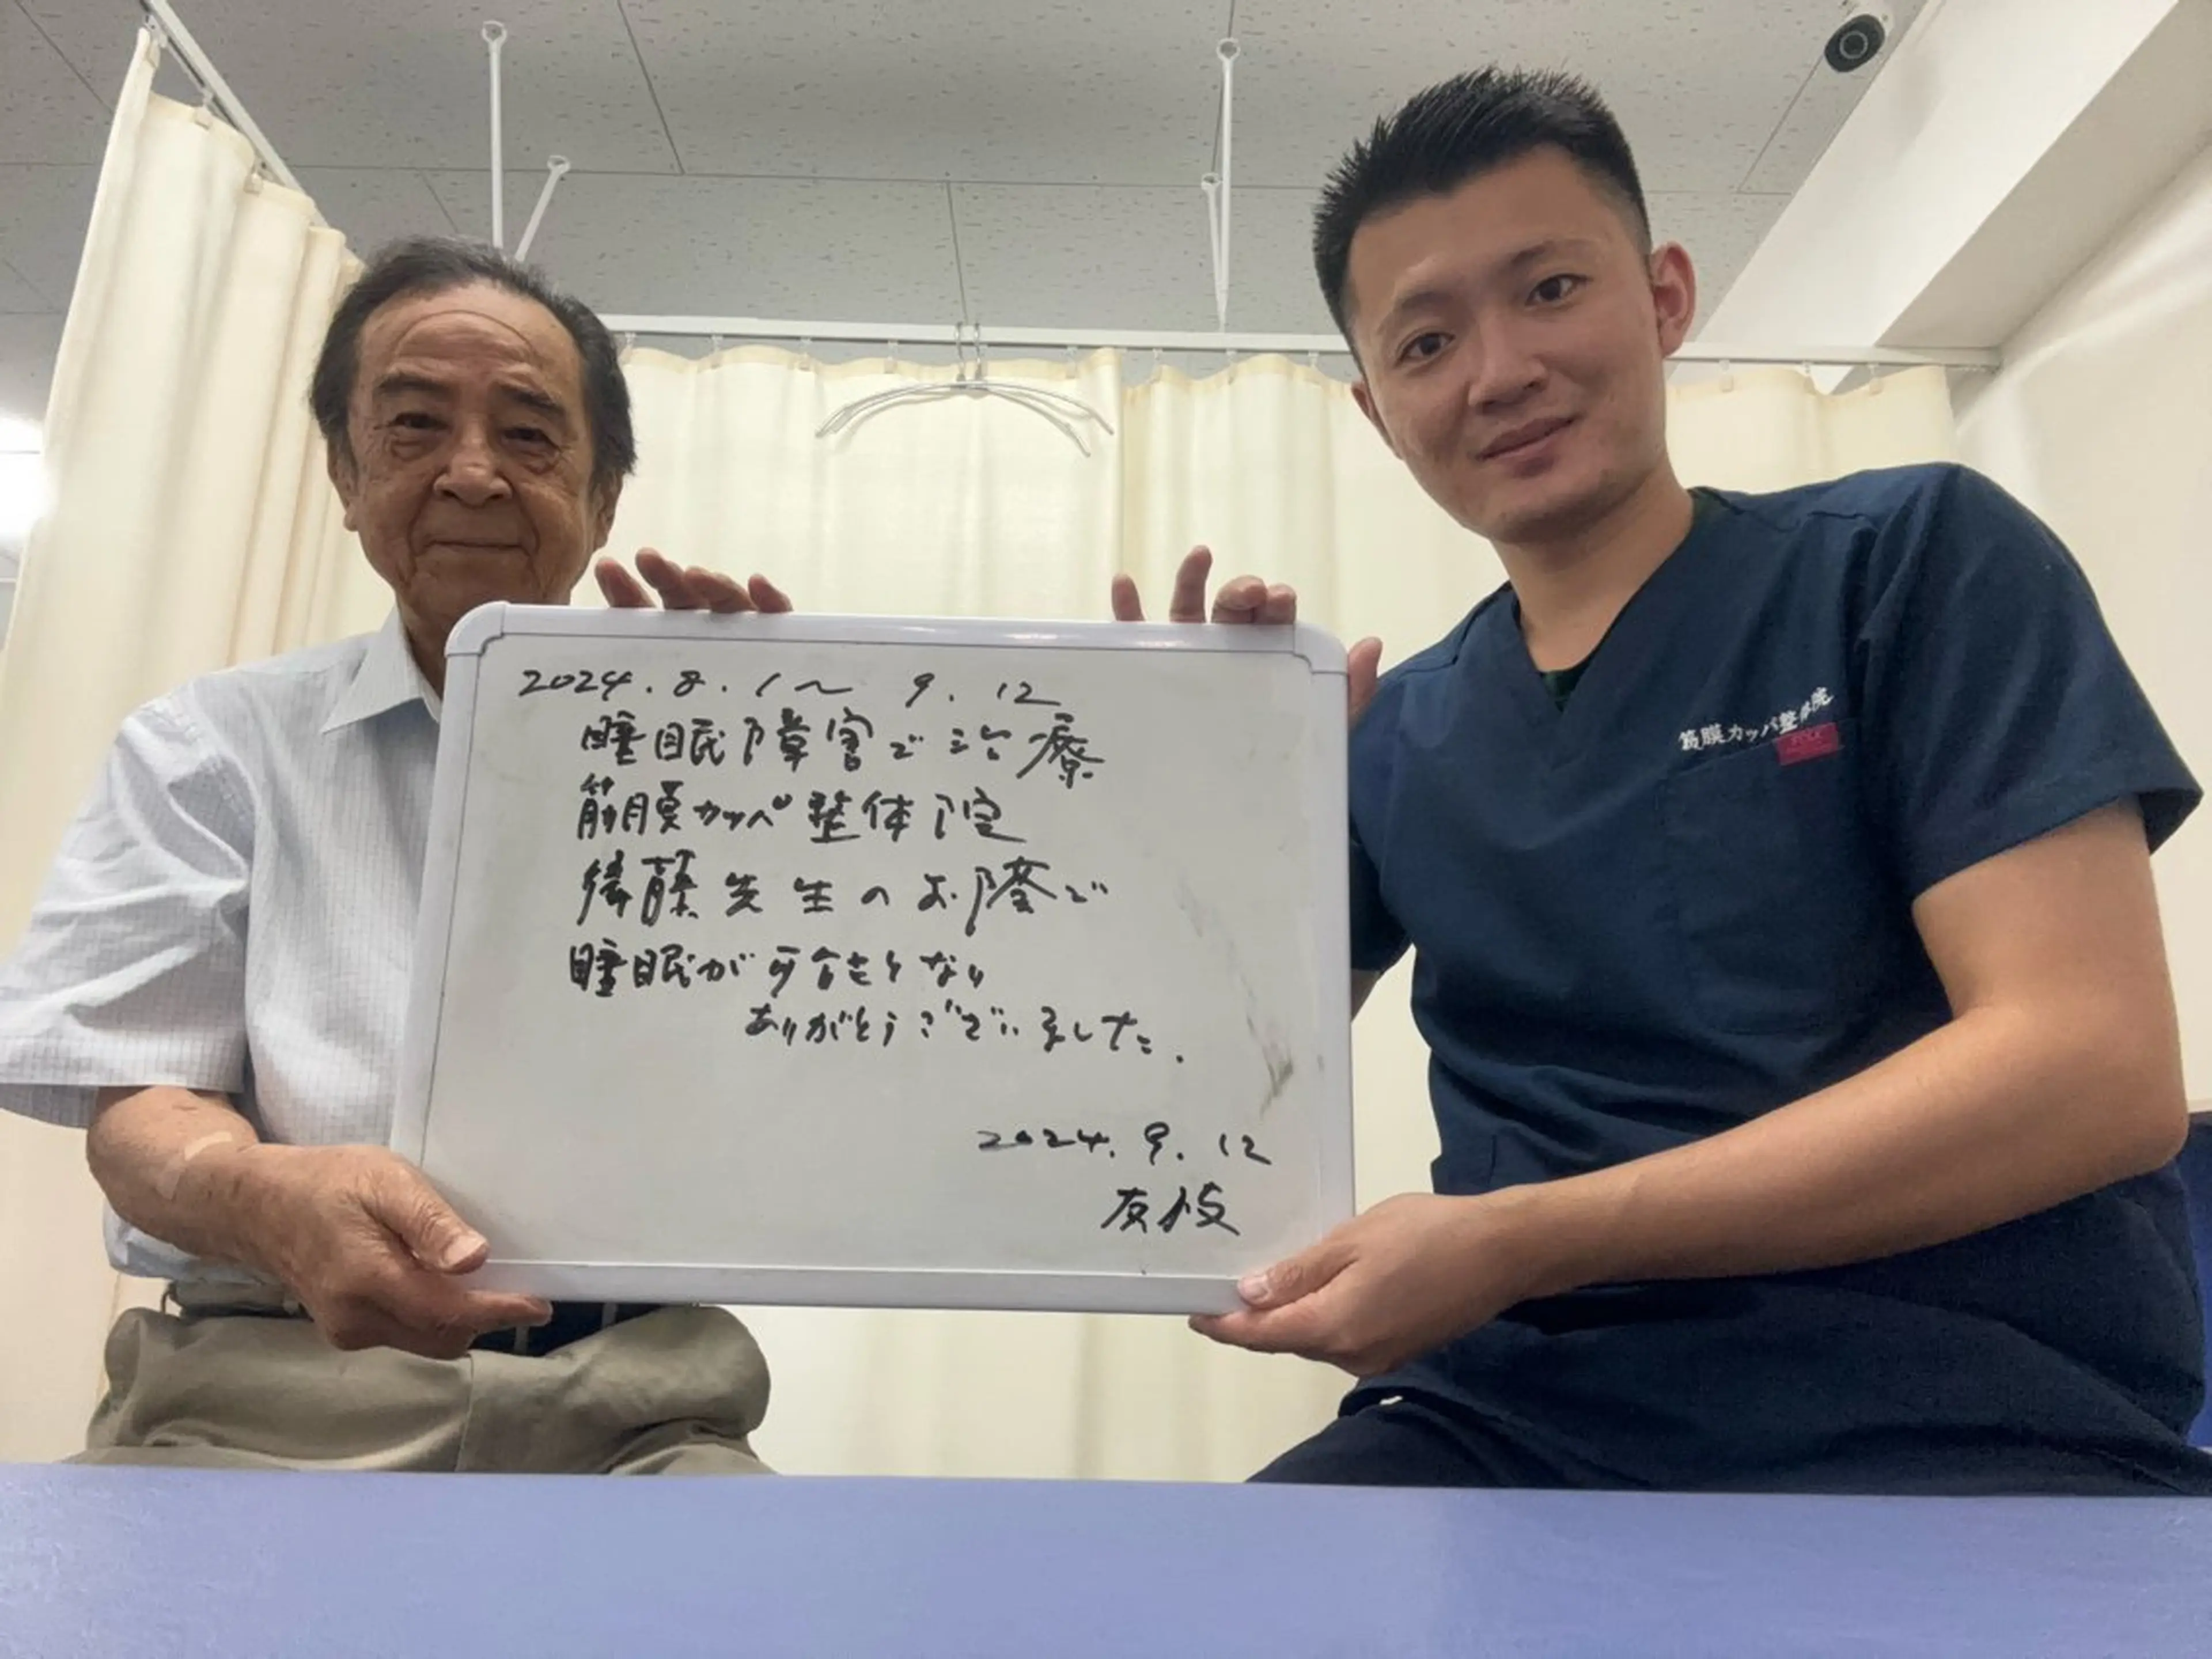 2024.8.1〜9.12
睡眠障害で治療
筋膜カッパ整体院
後藤先生のお陰で
睡眠が可能となり
ありがとうございました.
2024.9.12
友枝
筋膜カッパ整体院